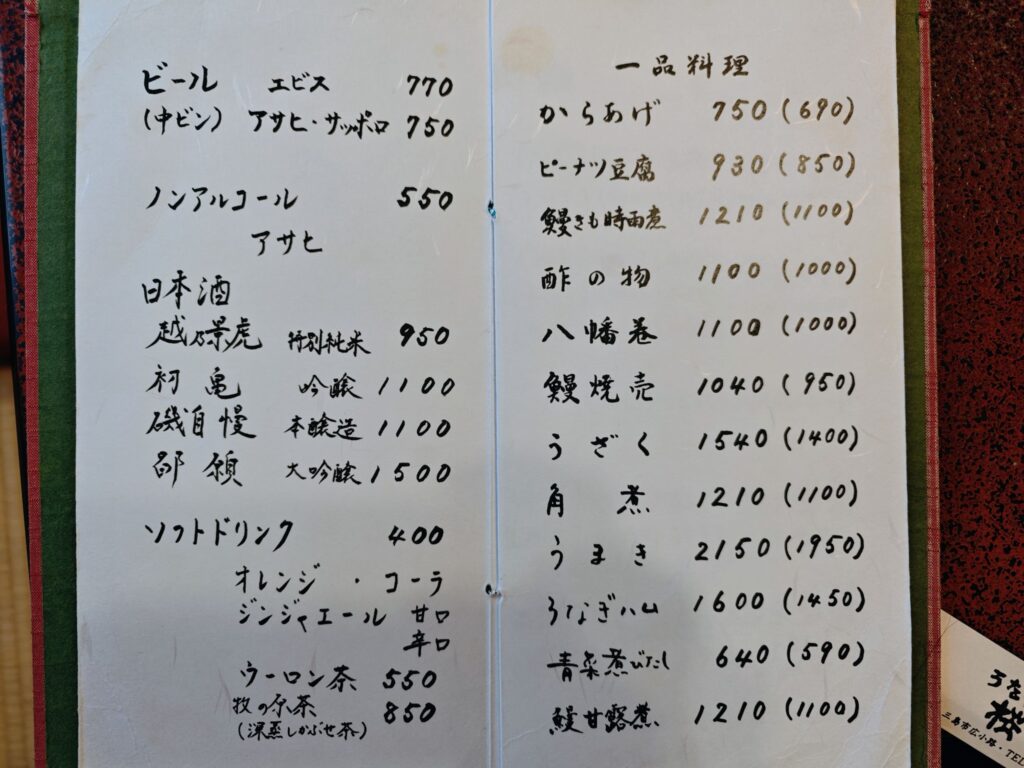 ビール エビス 770
(中ビン) アサヒ・サッポロ 750
ノンアルコール 550
アサヒ
日本酒
越乃景虎 特別純米 950
初亀 吟醸 1100
磯自慢 本醸造 1100
大吟醸 1500
ソフトドリンク 400
オレンジ・コーラ
ジンジャエール 甘口
辛口
ウーロン茶 550
牧の原茶 850
(深蒸しかぶせ茶)
一品料理
からあげ 750 (690)
ピーナツ豆腐 930 (850)
鰻きも時雨煮 1210 (1100)
酢の物 1100 (1000)
八幡巻 1100 (1000)
鰻焼売 1040 (950)
うざく 1540 (1400)
角煮 1210 (1100)
うまき 2150 (1950)
うなぎハム 1600 (1450)
青菜煮びたし 640 (590)
鰻甘露煮 1210 (1100)
うな
三島市広小路・TEL